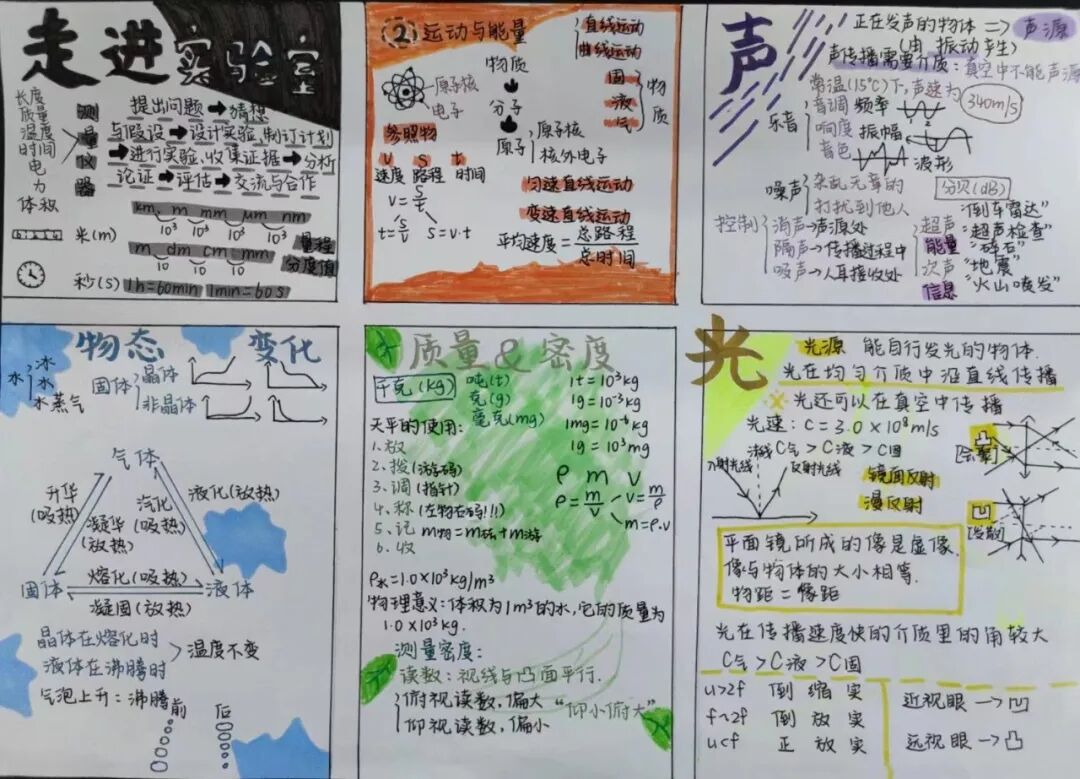 走进实验室
长度
质量
温度
时间
电力
体积
测量仪器
提出问题→猜想
与假设→设计实验,制订计划
→进行实验,收集证据→分析
论证→评估→交流与合作
km m mm μm nm
10³ 10³ 10³ 10³
米(m)
m dm cm mm
10 10 10
量程
分度值
秒(s) 1h=60min 1min=60s
② 运动与能量
直线运动
曲线运动
物质
分子
原子
原子核
电子
原子核
核外电子
固
液
气
物质
参照物
v s t
速度 路程 时间
v=s/t
t=s/v s=v·t
匀速直线运动
变速直线运动
平均速度=总路程/总时间
声
正在发声的物体=>声源
(由振动产生)
声传播需要介质:真空中不能声源
常温(15℃)下,声速为340m/s
乐音
音调 频率
响度 振幅
音色 波形
噪声
杂乱无章的
打扰到他人
分贝(dB)
控制
消声→声源处
隔声→传播过程中
吸声→人耳接收处
超声
能量
次声
信息
"倒车雷达"
"超声检查"
"碎石"
"地震"
"火山喷发"
物态变化
水
冰
水
水蒸气
固体
晶体
非晶体
气体
升华
(吸热)
凝华
(放热)
汽化
(吸热)
液化(放热)
固体
熔化(吸热)
液体
凝固(放热)
晶体在熔化时
液体在沸腾时
温度不变
气泡上升:沸腾前 后
质量&密度
千克(kg)
吨(t) 1t=10³kg
克(g) 1g=10⁻³kg
毫克(mg) 1mg=10⁻⁶kg
1g=10³mg
天平的使用:
1.放
2.拨(游码)
3.调(指针)
4.称(左物右码!!!)
5.记 m物=m砝+m游
6.收
ρ m v
ρ=m/v v=m/ρ
m=ρ·v
ρ水=1.0×10³kg/m³
物理意义:体积为1m³的水,它的质量为
1.0×10³kg.
测量密度:
读数:视线与凸面平行.
俯视读数,偏大
仰视读数,偏小
"仰小俯大"
光
光源 能自行发光的物体.
光在均匀介质中沿直线传播
※光还可以在真空中传播
光速:C=3.0×10⁸m/s
C气>C液>C固
入射光线
法线
反射光线
镜面反射
漫反射
凸
[会聚]
凹
[发散]
平面镜所成的像是虚像.
像与物体的大小相等.
物距=像距
光在传播速度快的介质里的角较大
C气>C液>C固
u>2f 倒 缩 实
f~2f 倒 放 实
u<f 正 放 实
近视眼→凹
远视眼→凸